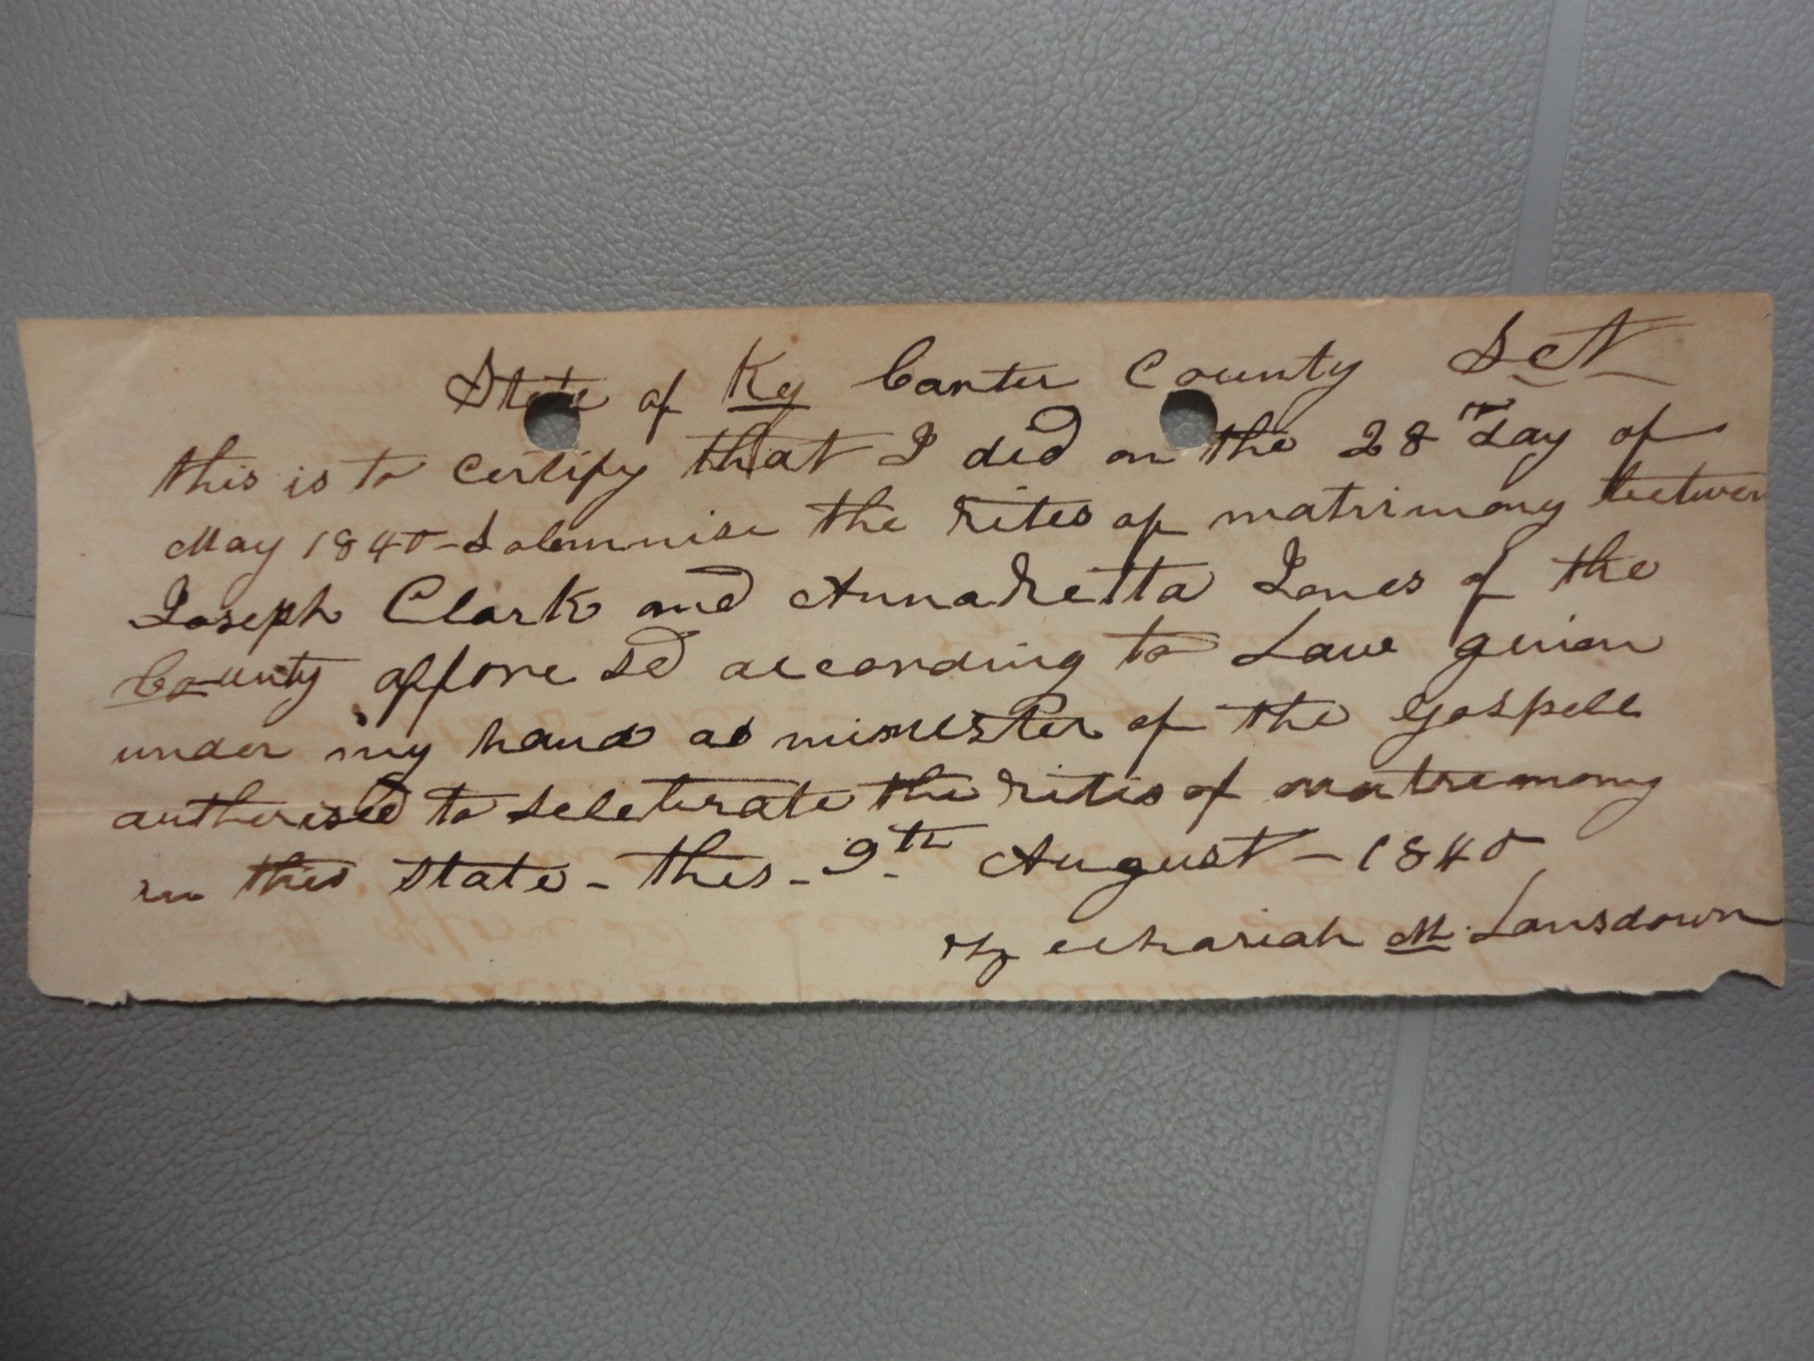 State of Ky Carter County Sct
this is to certify that I did on the 28th day of
May 1840 - Solemnise the rites of matrimony between
Joseph Clark and Annaretta Jones of the
County affore sd according to Law given
under my hand as minister of the Gospell
authorised to selebrate the rites of matremony
in this State - this - 9th August - 1840
Zechariah M Lansdown